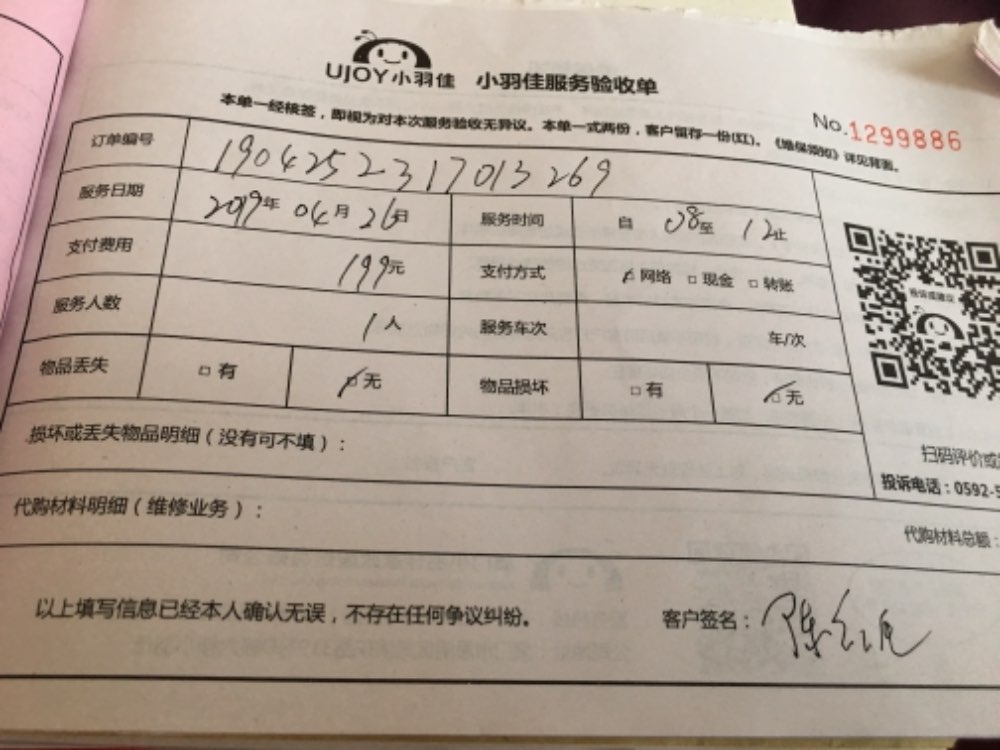 UJOY小羽佳 小羽佳服务验收单
本单一经核签，即视为对本次服务验收无异议。本单一式两份，客户留存一份(红)。《维保须知》详见背面。
No.1299886
订单编号 1904252317013269
服务日期 2019年 04月 26日 服务时间 自 08至 12止
支付费用 199元 支付方式 网络 现金 转账
服务人数 1人 服务车次 车/次
物品丢失 有 无 物品损坏 有 无
损坏或丢失物品明细（没有可不填）：
扫码评价或
投诉电话：0592-5
代购材料明细（维修业务）： 代购材料总额：
以上填写信息已经本人确认无误，不存在任何争议纠纷。 客户签名：陈